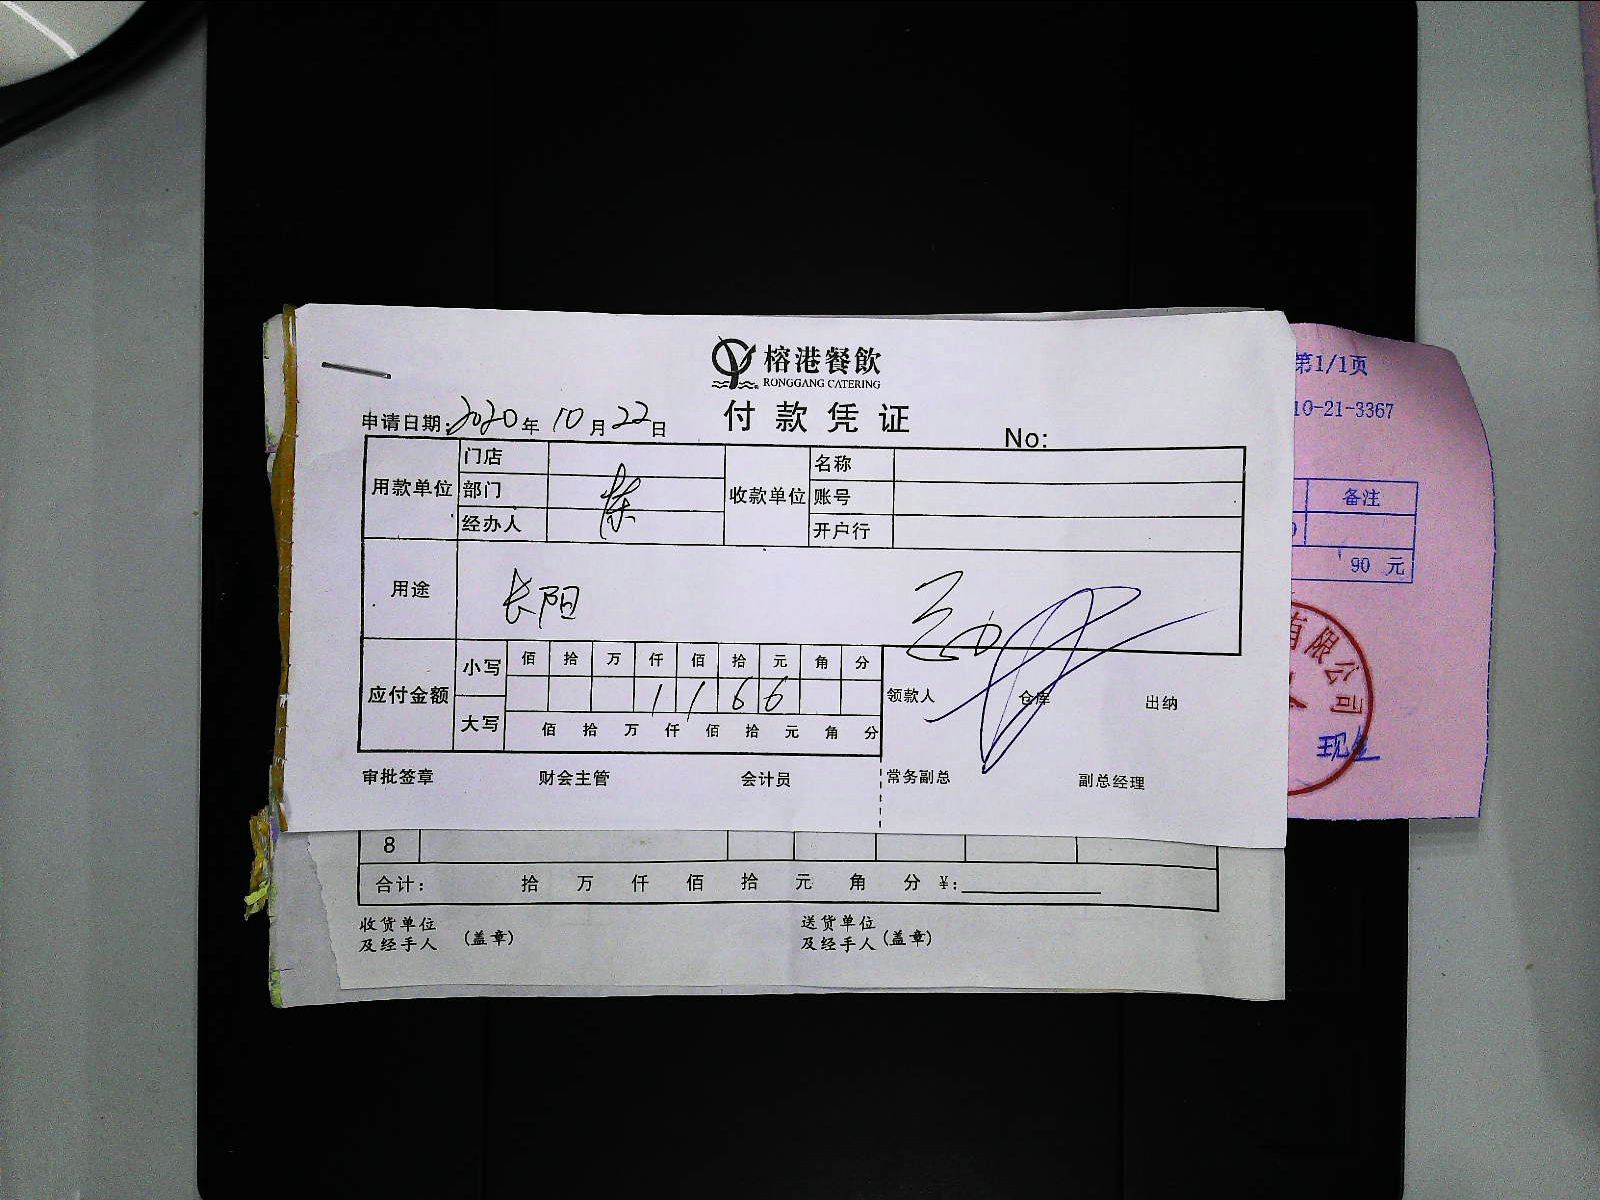 榕港餐飲
RONGGANG CATERING
付款凭证
申请日期: 2020年10月22日
No:
用款单位 门店 收款单位 名称
部门 账号
经办人 开户行
用途 长阳
应付金额 小写 佰 拾 万 仟 佰 拾 元 角 分
1 1 6 6
大写 佰 拾 万 仟 佰 拾 元 角 分
领款人 仓库 出纳
审批签章 财会主管 会计员 常务副总 副总经理
8
合计: 拾 万 仟 佰 拾 元 角 分 ¥:
收货单位及经手人 (盖章) 送货单位及经手人 (盖章)
第1/1页
10-21-3367
备注
90 元
有限公司